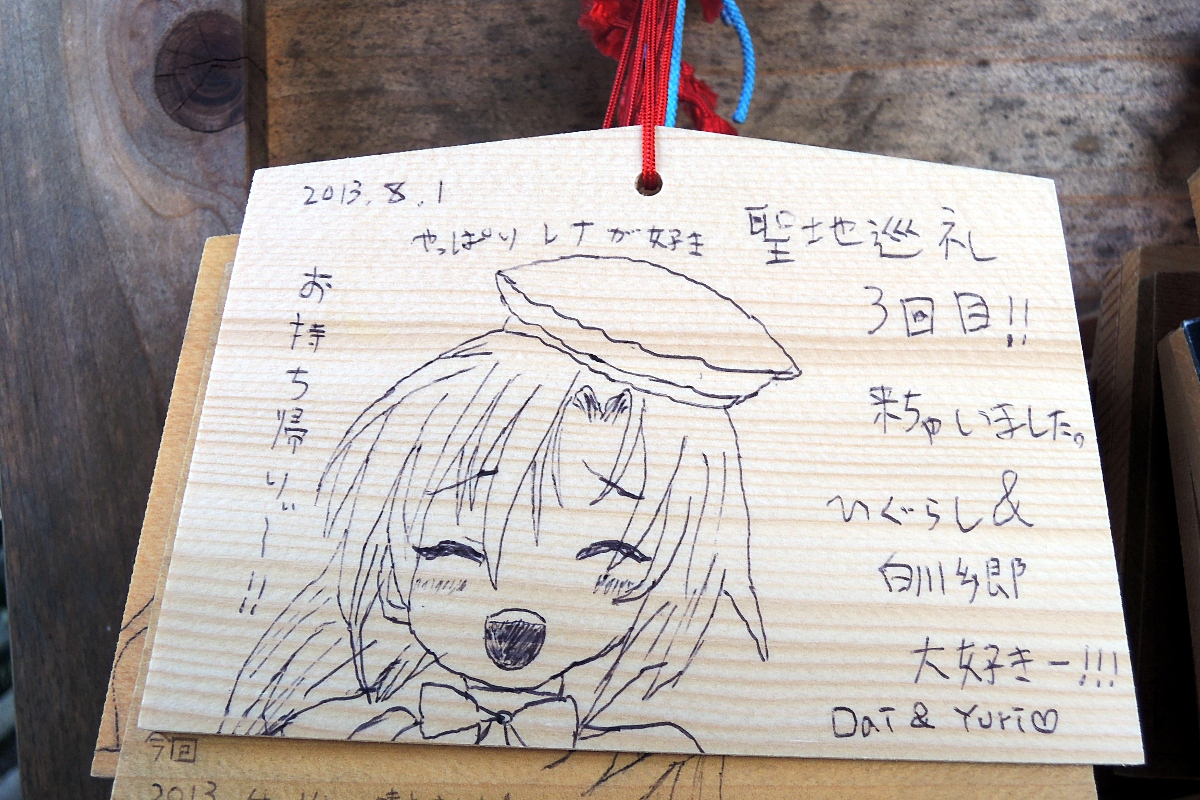 2013.8.1
やっぱりレナが好き
お持ち帰りぃー!!
聖地巡礼
3回目!!
来ちゃいました。
ひぐらし&
白川郷
大好きー!!!
Dai & Yuri♡
今回
2013